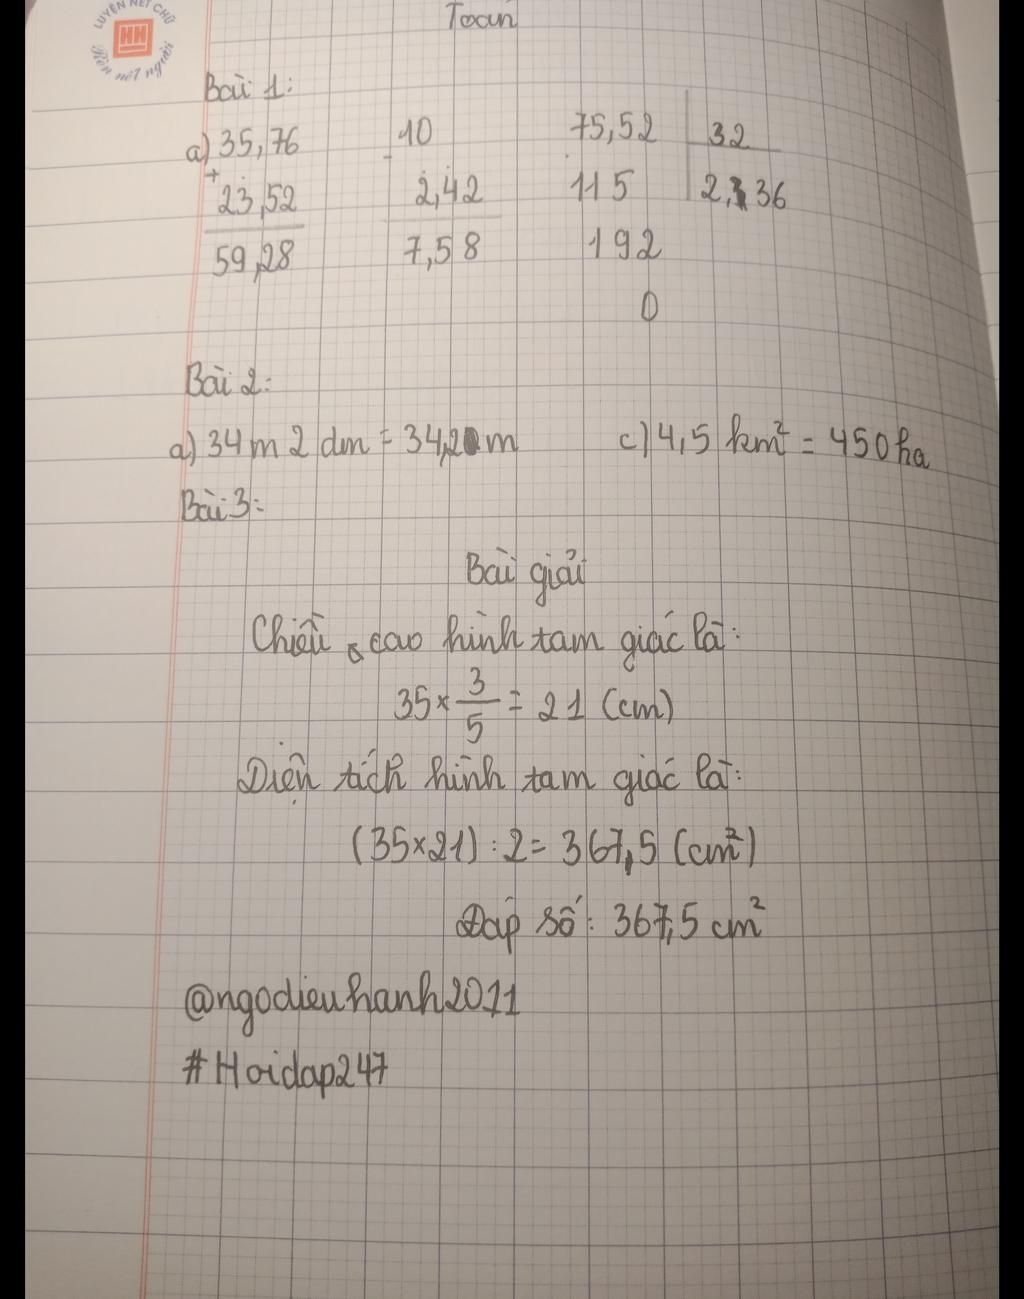 LUYỆN NÉT CHỮ
HH
Rèn nết người
Toán
Bài 1:
a) 35,76 + 23,52 59,28
10 - 2,42 7,58
75,52 32
115 2,36
192
0
Bài 2:
a) 34 m 2 dm = 34,2 m c) 4,5 km² = 450 ha
Bài 3:
Bài giải
Chiều cao hình tam giác là:
35 × 3/5 = 21 (cm)
Diện tích hình tam giác là:
(35×21) : 2 = 367,5 (cm²)
Đáp số: 367,5 cm²
@ngodieuhanh2011
#Hoidap247